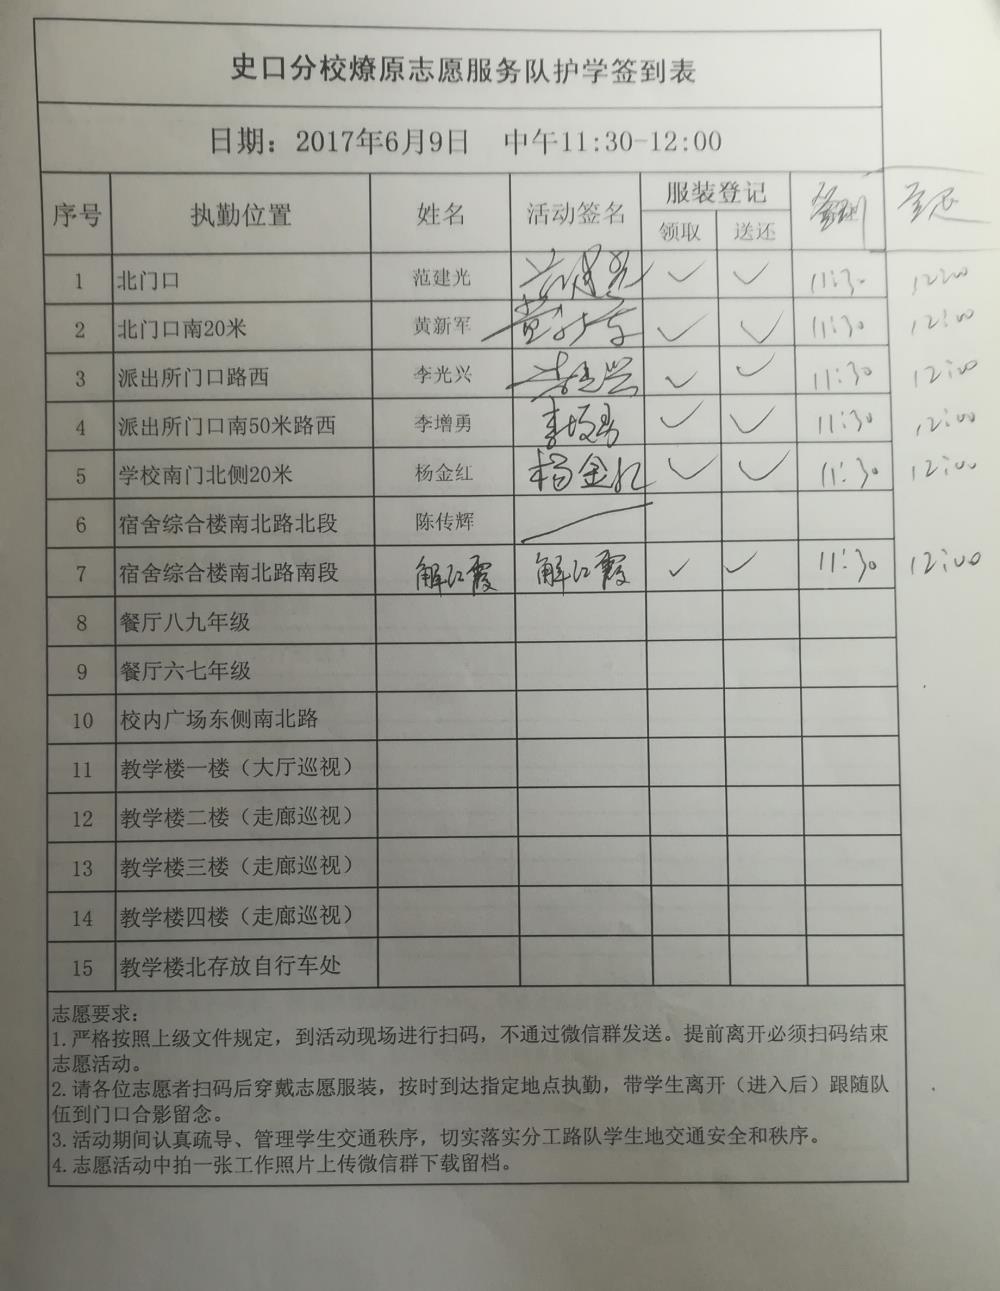 史口分校燎原志愿服务队护学签到表
日期：2017年6月9日 中午11:30-12:00
序号 执勤位置 姓名 活动签名 服装登记 签到
领取 送还
1 北门口 范建光 范建光 ✓ ✓ 11:30 12:00
2 北门口南20米 黄新军 黄新军 ✓ ✓ 11:30 12:00
3 派出所门口路西 李光兴 李光兴 ✓ ✓ 11:30 12:00
4 派出所门口南50米路西 李增勇 李增勇 ✓ ✓ 11:30 12:00
5 学校南门北侧20米 杨金红 杨金红 ✓ ✓ 11:30 12:00
6 宿舍综合楼南北路北段 陈传辉
7 宿舍综合楼南北路南段 解红霞 解红霞 ✓ ✓ 11:30 12:00
8 餐厅八九年级
9 餐厅六七年级
10 校内广场东侧南北路
11 教学楼一楼（大厅巡视）
12 教学楼二楼（走廊巡视）
13 教学楼三楼（走廊巡视）
14 教学楼四楼（走廊巡视）
15 教学楼北存放自行车处
志愿要求：
1.严格按照上级文件规定，到活动现场进行扫码，不通过微信群发送。提前离开必须扫码结束
志愿活动。
2.请各位志愿者扫码后穿戴志愿服装，按时到达指定地点执勤，带学生离开（进入后）跟随队
伍到门口合影留念。
3.活动期间认真疏导、管理学生交通秩序，切实落实分工路队学生地交通安全和秩序。
4.志愿活动中拍一张工作照片上传微信群下载留档。